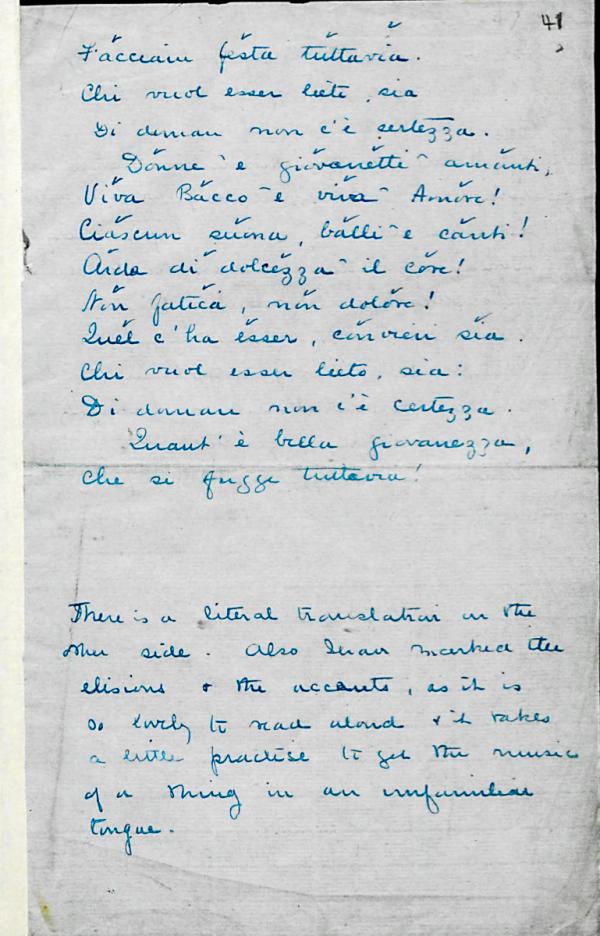 41
Facciam festa tuttavia.
Chi vuol esser lieto, sia
Di doman non c'è certezza.
Donne e giovanetti amanti,
Viva Bacco e viva Amore!
Ciascun suona, balli e canti!
Arda di dolcezza il core!
Non fatica, non dolore!
Quel c'ha esser, convien sia.
Chi vuol esser lieto, sia:
Di doman non c'è certezza.
Quant' è bella giovanezza,
Che si fugge tuttavia!
There is a literal translation on the
other side. Also I have marked the
elisions & the accents, as it is
so lovely to read aloud & it takes
a little practise to get the music
of a thing in an unfamiliar
tongue.